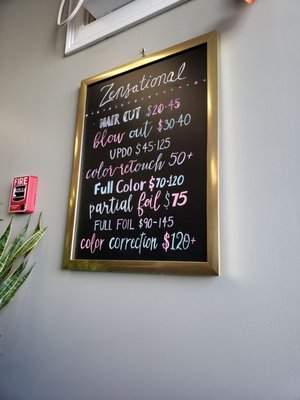 Zensational
HAIR CUT $20-45
blow out $30-40
UPDO $45-125
color-retouch 50+
Full Color $70-120
partial foil $75
FULL FOIL $90-145
color correction $120+
FIRE